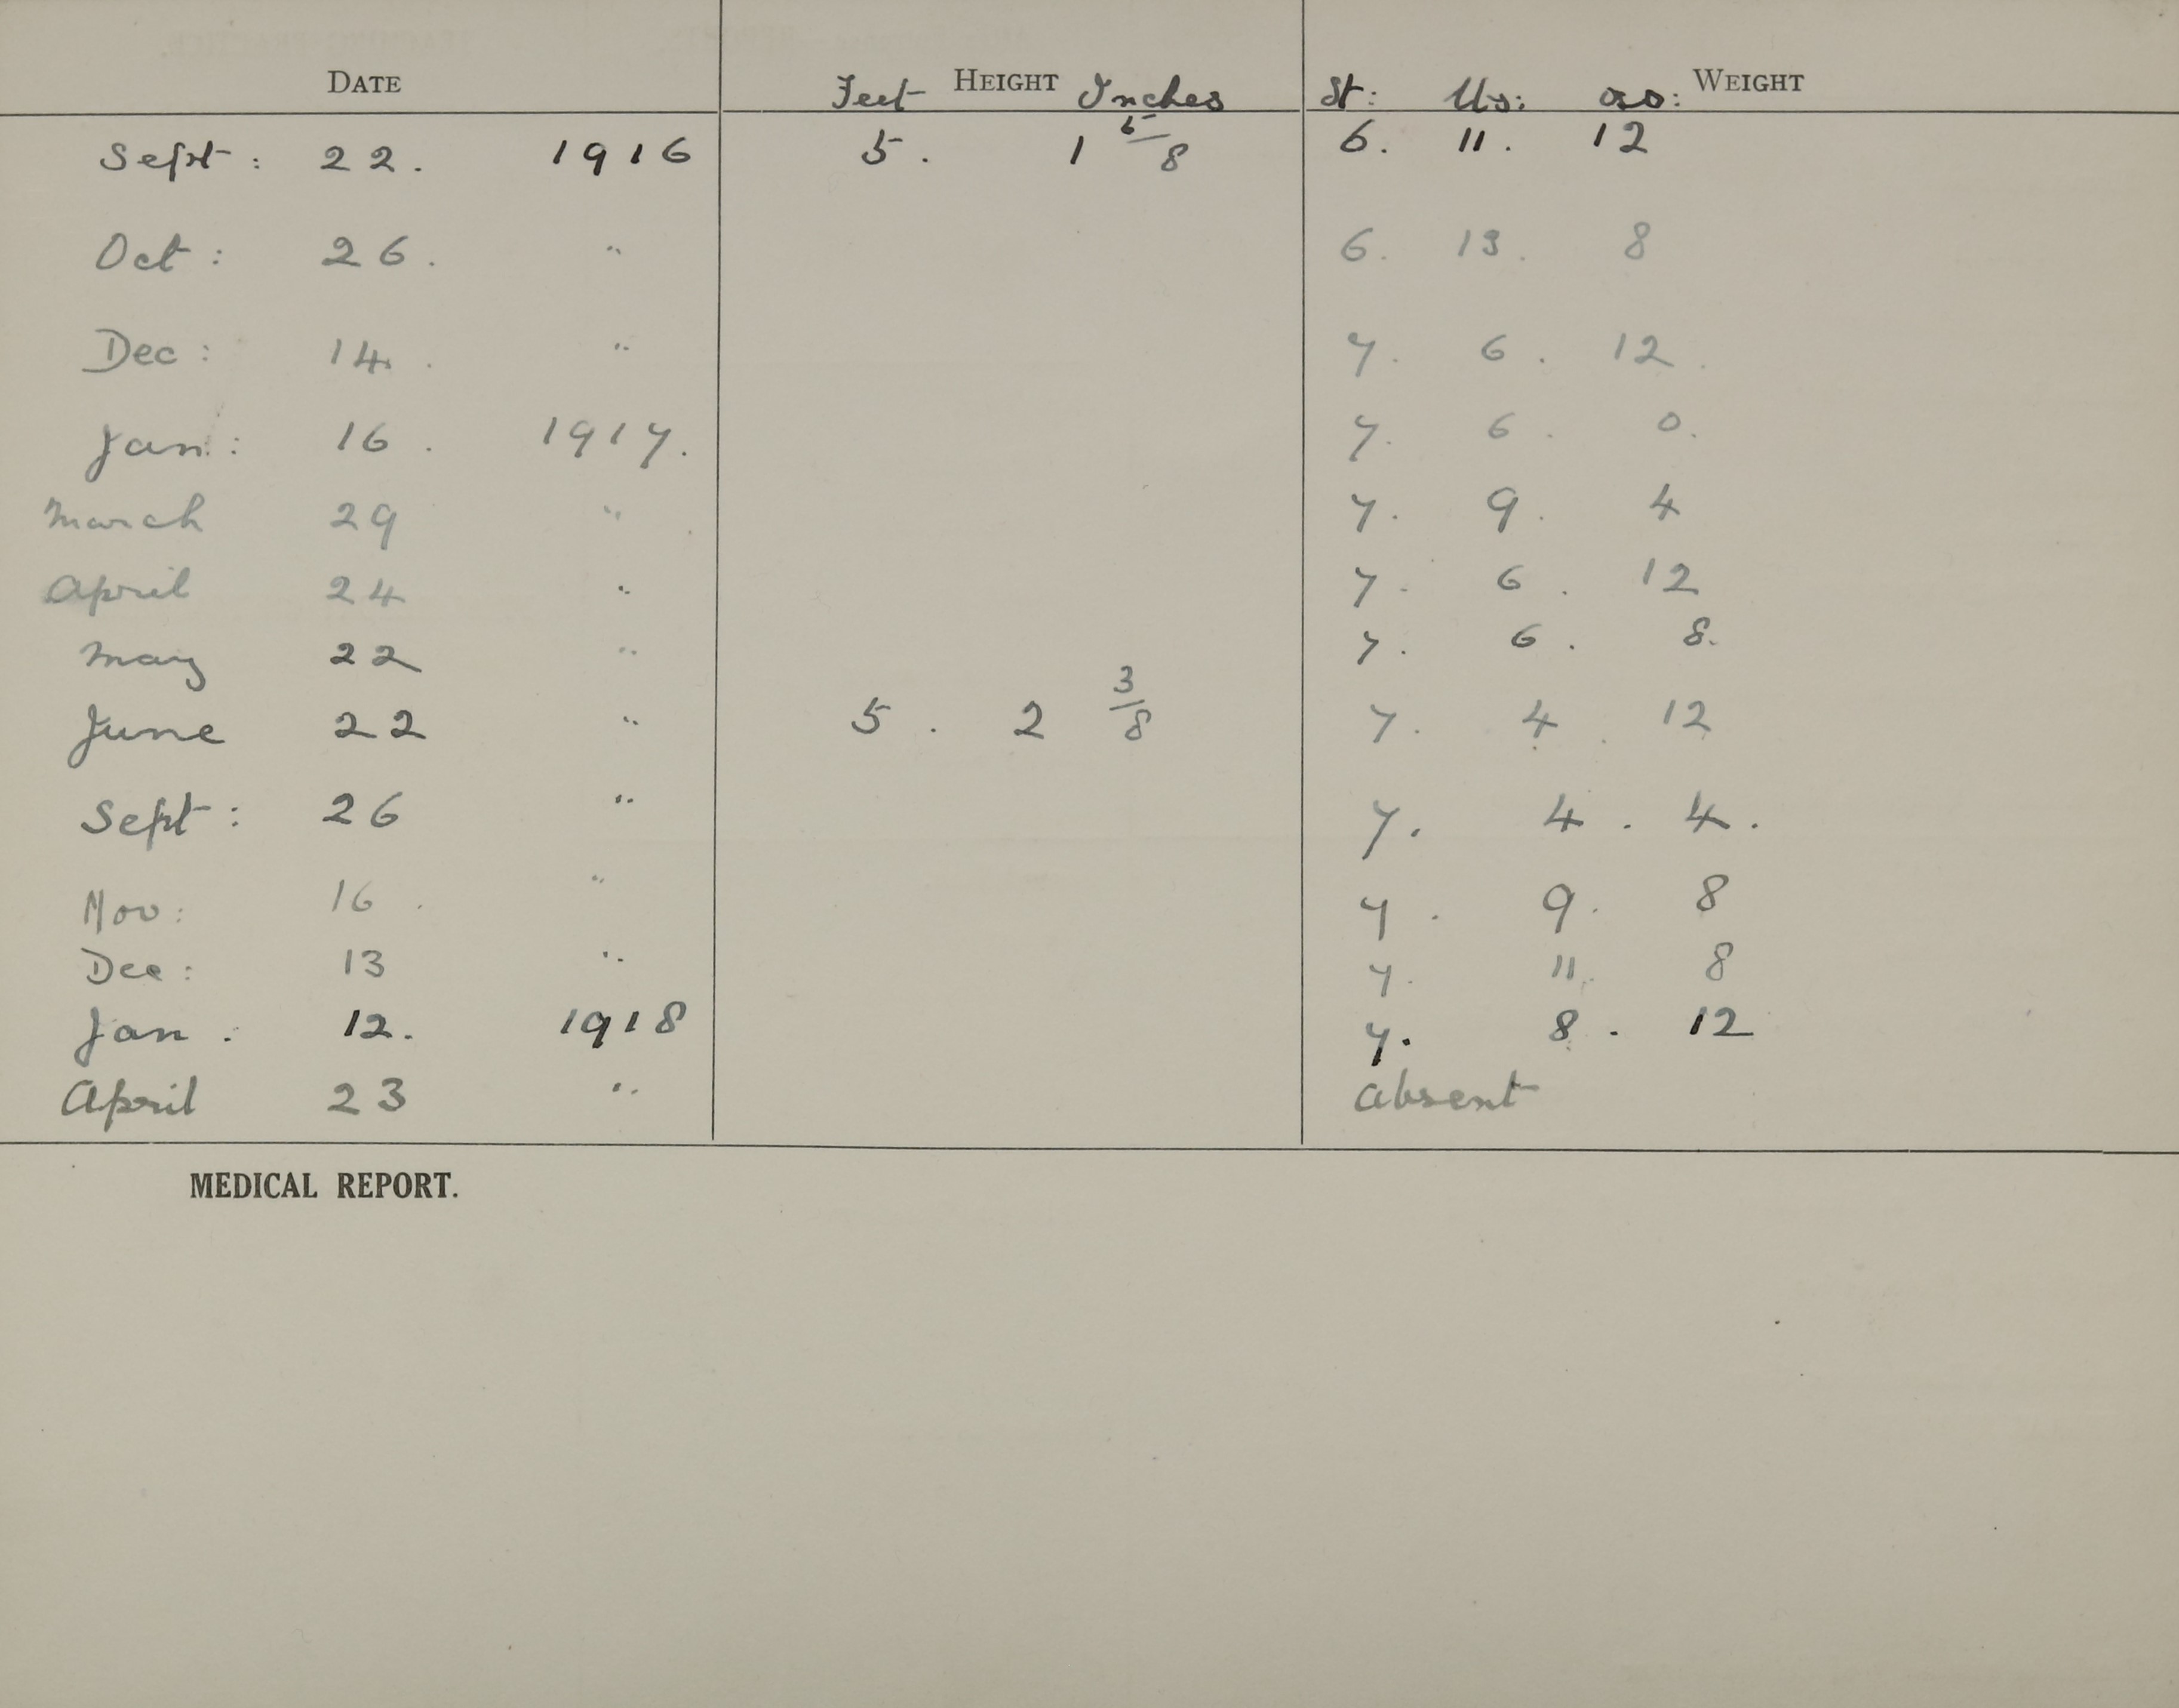 DATE Feet HEIGHT Inches St: lbs: ozs: WEIGHT
Sept: 22. 1916 5. 1 5/8 6. 11. 12
Oct: 26. " 6. 13. 8
Dec: 14. " 7. 6. 12.
Jan: 16. 1917. 7. 6. 0.
March 29 " 7. 9. 4
April 24 " 7. 6. 12
May 22 " 7. 6. 8.
June 22 " 5. 2 3/8 7. 4. 12
Sept: 26 " 7. 4. 4.
Nov: 16. " 7. 9. 8
Dec: 13 " 7. 11. 8
Jan: 12. 1918 7. 8. 12
April 23 " absent
MEDICAL REPORT.